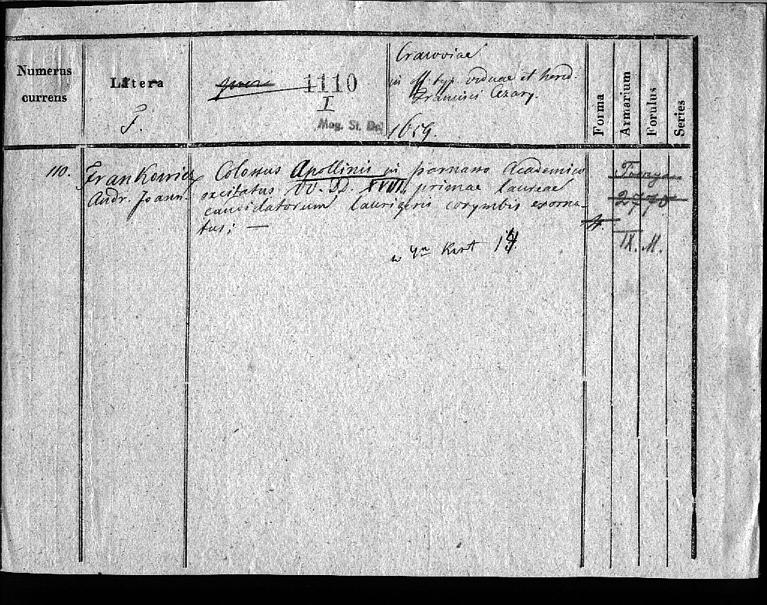 Numerus
currens
Litera
F.
1110
I
Mag. St. Dr.
Cracoviae
in off. typ. viduae et hered.
Francisci Cezary.
1659.
Forma
Armarium
Forulus
Series
110.
Frankowicz
Andr. Joann.
Colossus Apollinis in parnasso Academico
excitatus VV. DD. XVIII primae laureae
candidatorum laurigeris corymbis exorna-
tus; —
w 4ce Kart
4.
2770
IX. M.